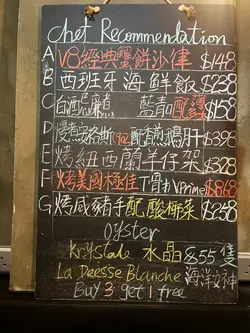 Chef Recommendation
A V8經典蟹餅沙律 $148
B 西班牙海鮮飯 $238
C 白酒忌廉煮藍青口配薯 $158
D 慢煮 配香煎鴨肝 $398
E 烤紐西蘭羊仔架 $328
F 烤美國極佳丁骨扒Prime $868
G 烤咸豬手配酸椰菜 $258
Oyster
Krystale 水晶 $55隻
La Deesse Blanche 海洋女神
Buy 3 get 1 free